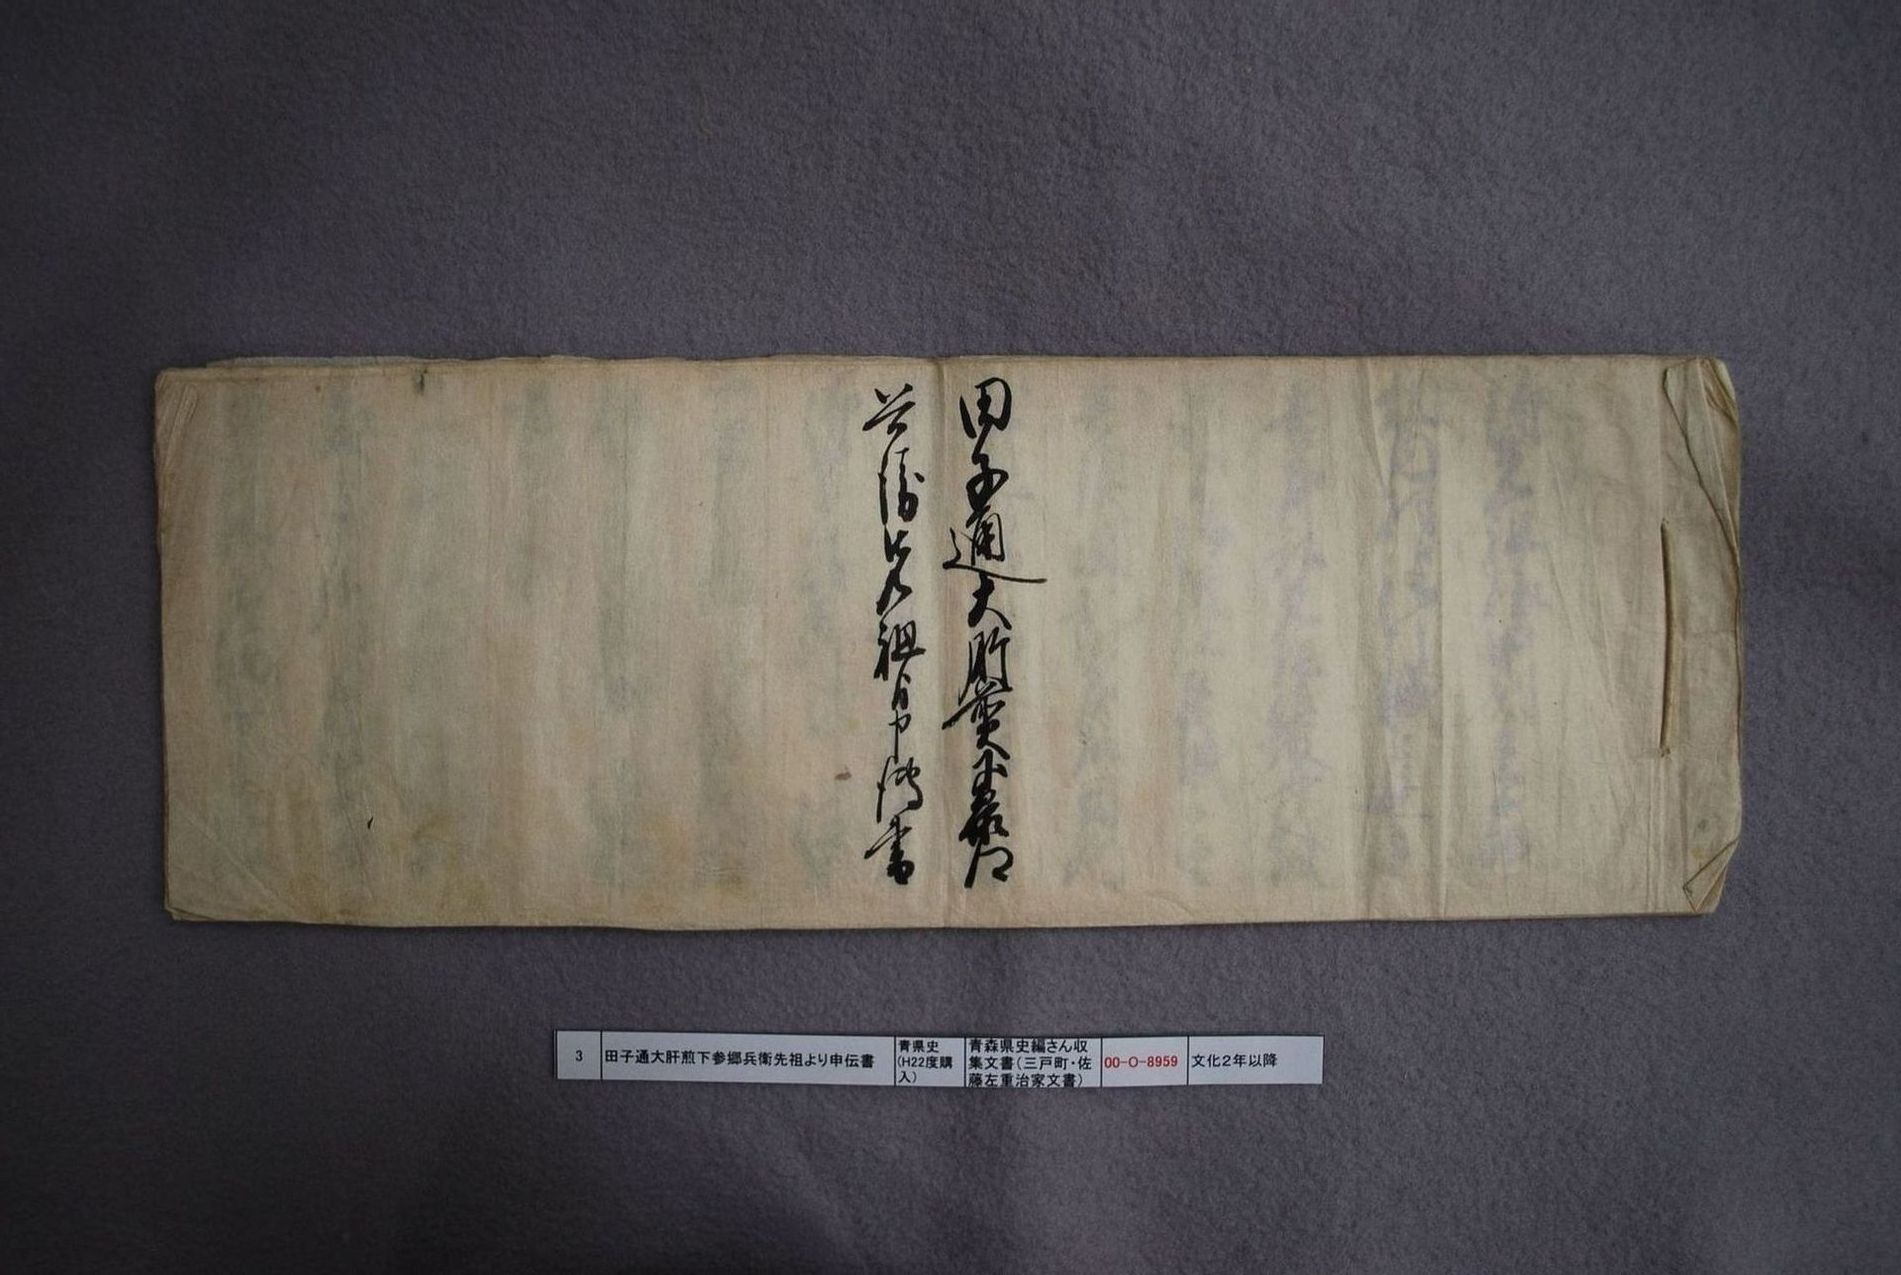 田子通大肝煎下参郷
兵衛先祖自申傳書
3
田子通大肝煎下参郷兵衛先祖より申伝書
青県史
(H22度購
入)
青森県史編さん収
集文書(三戸町・佐
藤左重治家文書)
00-O-8959
文化2年以降